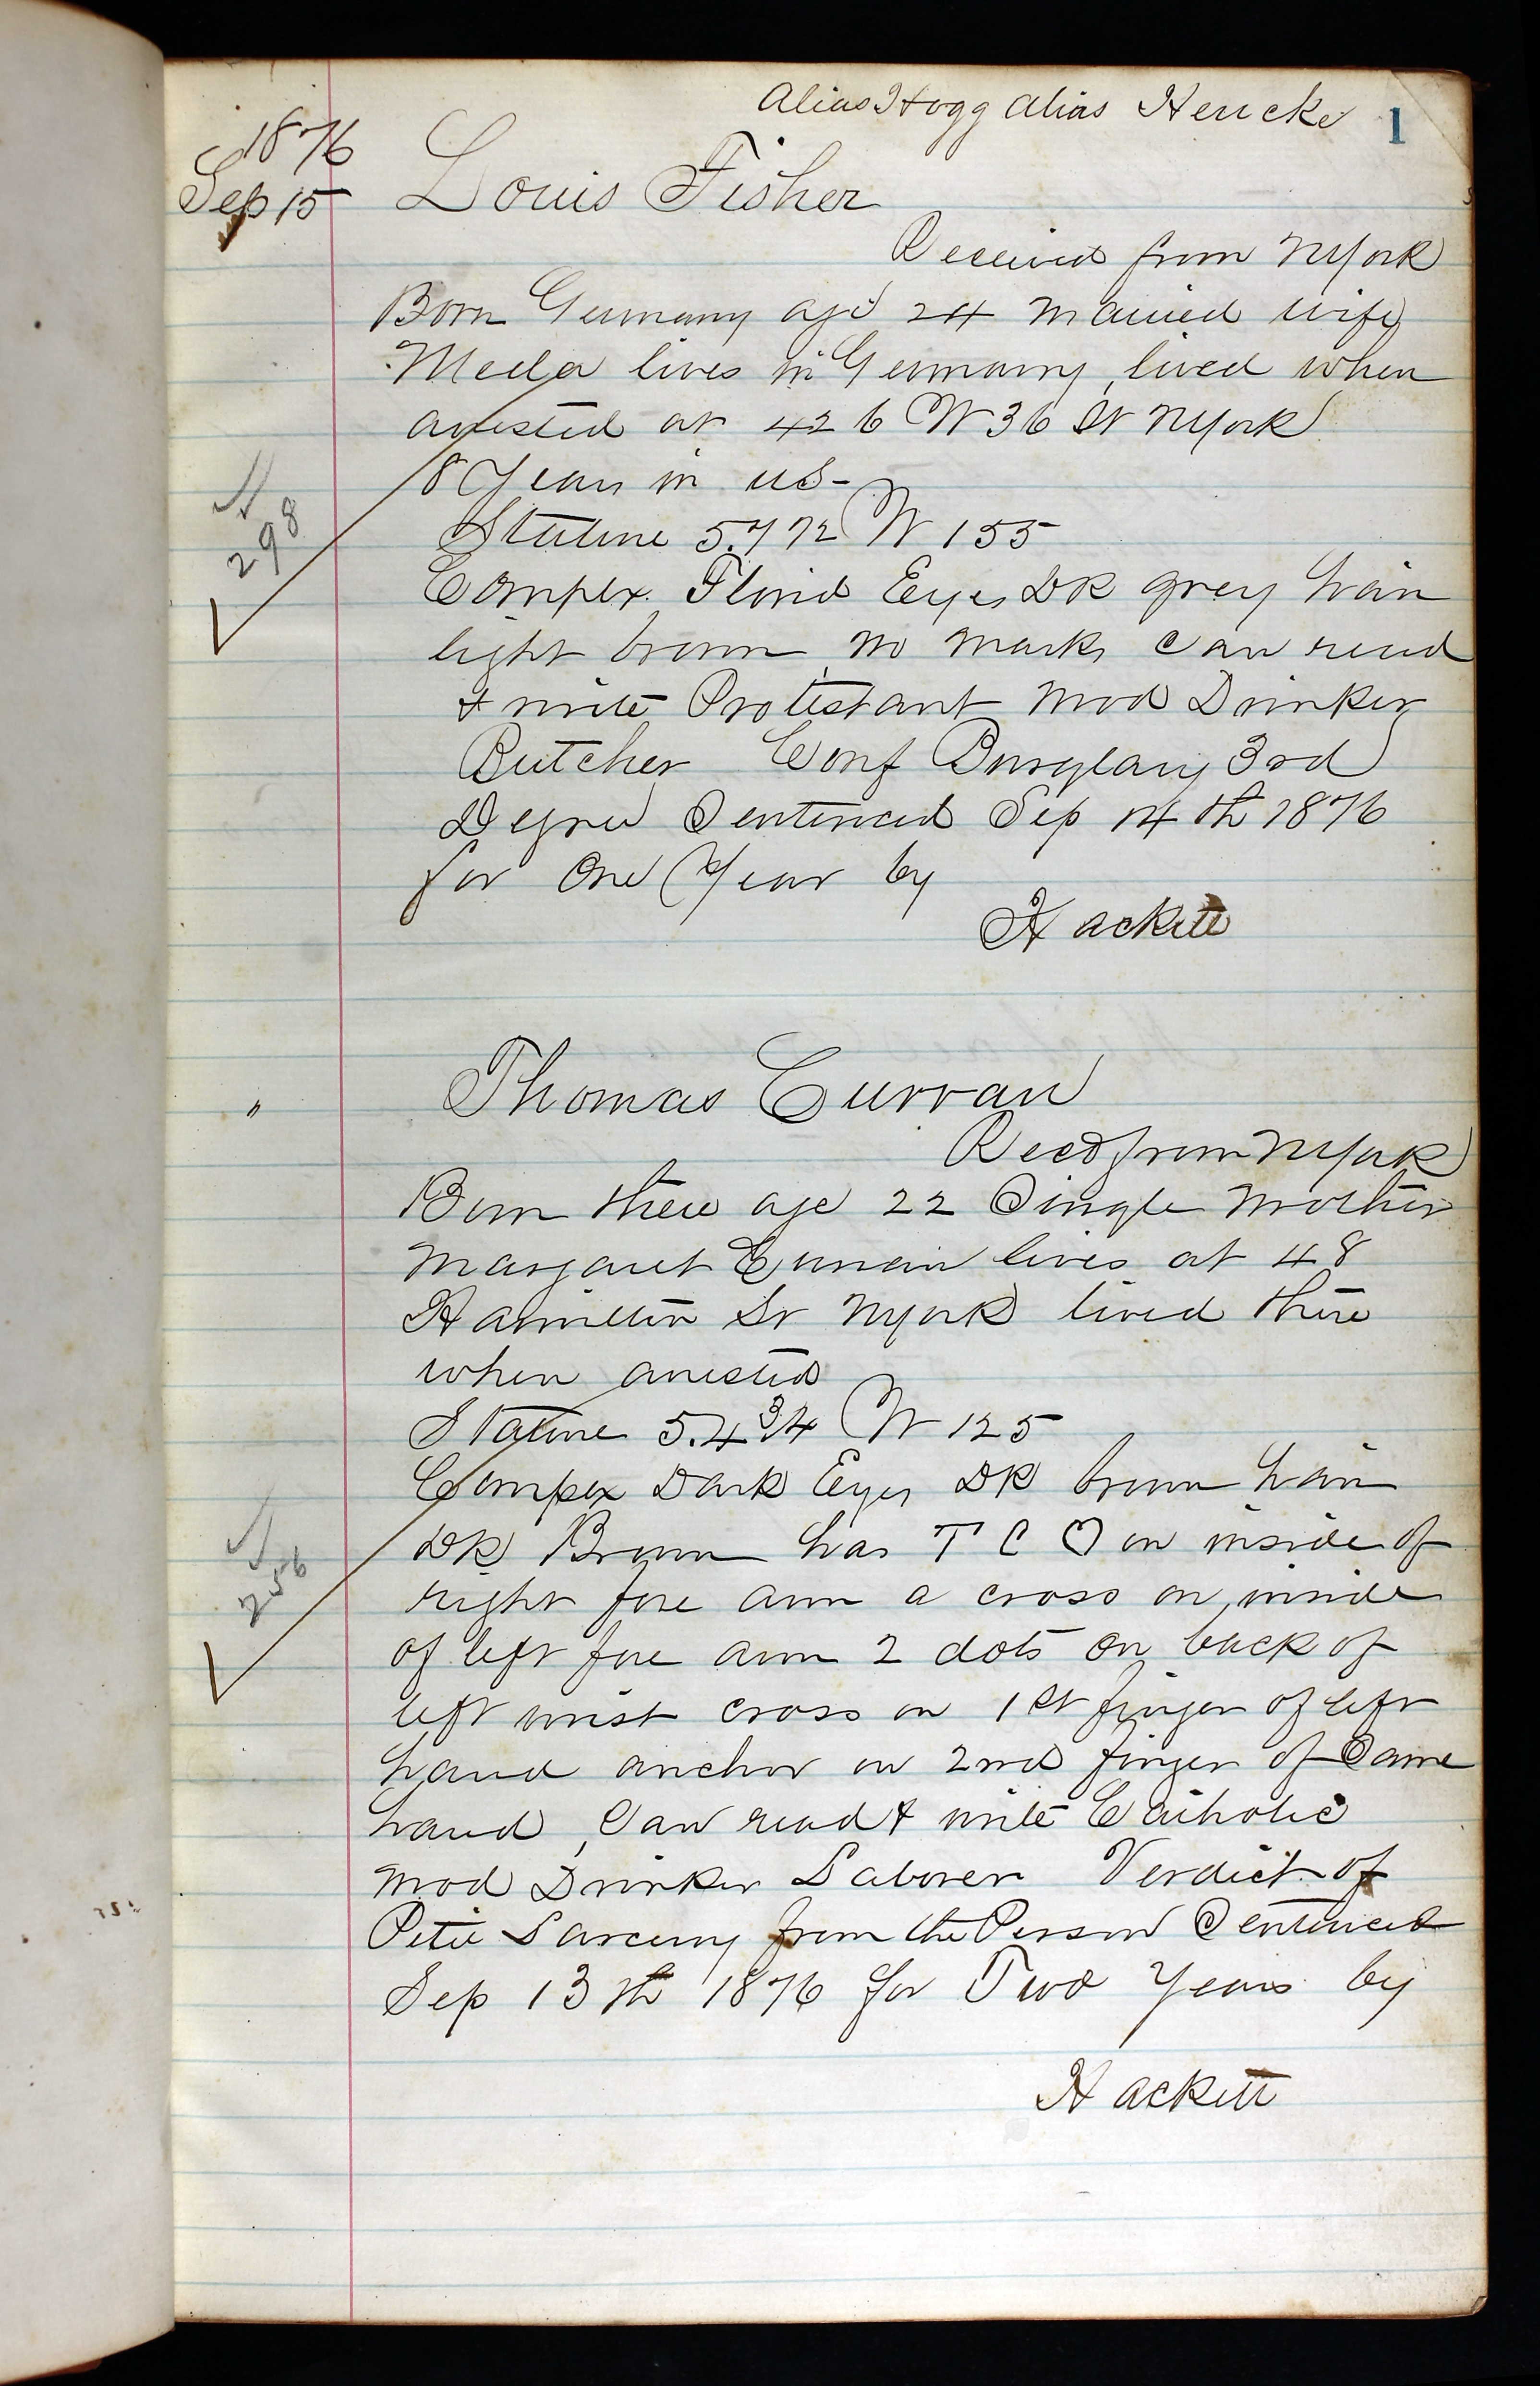 Alias Hogg alias Hencke
1
1876
Sep 15
Louis Fisher
Received from NYork
Born Germany age 24 Married wife
Meda lives in Germany, lived when
arrested at 426 W 36 St NYork
8 Years in US-
298
Stature 5.7 1/2 W 155
Complx. Florid Eyes DK grey hair
light brown, no marks can read
& write Protestant Mod Drinker
Butcher Conf Burglary 3rd
Degree Sentenced Sep 14th 1876
for One Year by
Hackett
"
Thomas Curran
Recd from NYork
Born there age 22 Single Mother
Margaret Curran lives at 48
Hamilton St NYork lived there
when arrested
Stature 5.4 3/4 W 125
Complex Dark Eyes DK brown hair
256
DK Brown has T C ♡ on inside of
right fore arm a cross on inside
of left fore arm 2 dots on back of
left wrist cross on 1st finger of left
hand anchor on 2nd finger of Same
hand, Can read & write Catholic
Mod Drinker Laborer Verdict of
Petit Larceny from the Person Sentenced
Sep 13th 1876 for Two Years by
Hackett